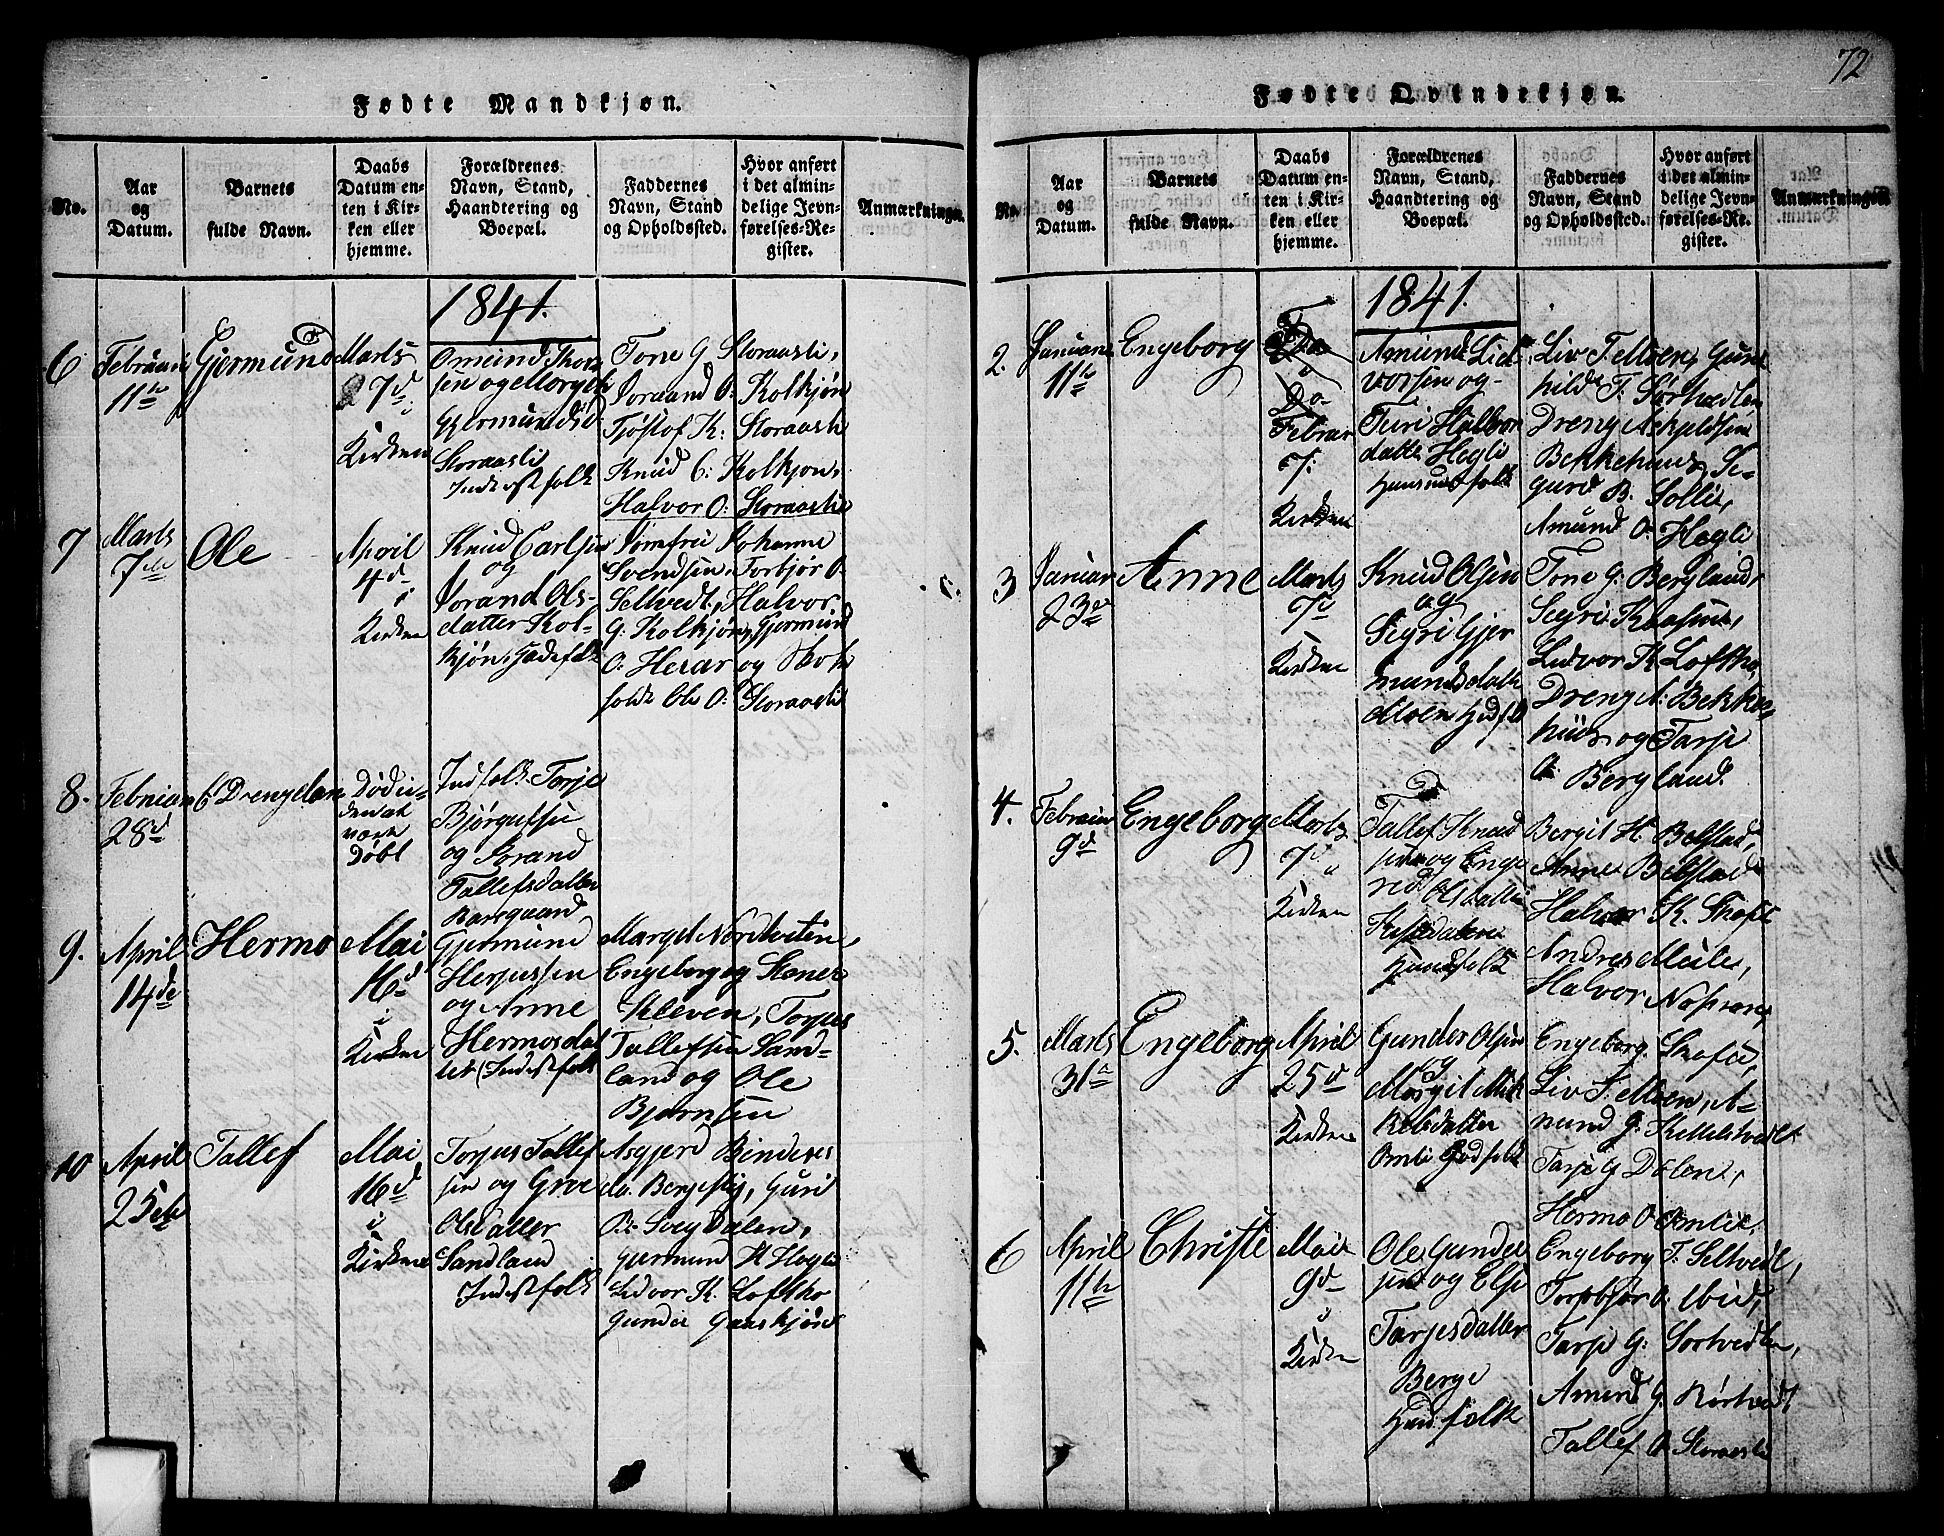 72
Fødte Mandkjøn.
No.
Aar og Datum.
Barnets fulde Navn.
Daabs Datum enten i Kirken eller hjemme.
Forældrenes Navn, Stand, Haandtering og Boepæl.
Faddernes Navn, Stand og Opholdssted.
Hvor anført i det almindelige Jevnførelses-Register.
Anmærkninger.
1841.
6
Februari
11te
Gjermund
Marts
7d
i
Kirken
Omund Thor
sen og Morgeh
Gjermundsd
Storaasli
Inderstfolk
Tone G Storaasli,
Joraand O: Kolkjøn
Tjøstof K: Storaasli
Knud C: Kolkjøn,
Halvor O: Storaaslie
7
Marts
7de
Ole
April
4d
i
Kirken
Knud Carlsen
og
Jorand Ols-
datter Kol-
kjøn, Gaardfolk
Jomfru Johanne
Svendsen, Torbjør O.
Seltvedt, Halvor
G. Kolkjøn, Gjermund
O: Herar og
Ole O: Storaasli
8.
Februar
28d
Et Drengebarn
Død u-
den at
være
Døbt
Indfolk Torje
Bjørgufsen
og Jorand
Tallefsdatter
Raasgaard
9.
April
14de
Hermo
Mai
16d
i
Kirken
Gjermund
Herjussen
og Anne
Hermosdat
ter Inderstfolk
Margit Nordtveiten,
Engeborg og Stener
Kleven, Torjus
Tallefsen Sand-
land og Ole
Bjørnsen
10
April
25de
Tallef
Mai
16d
i
Kirkene
Torjus Tallef
sen og Groe
Olsdatter
Sandland
Inderstfolk
Asgjerd
Bergestig, Guri
B: Svegdalen,
Gjermund H Høgli
Lidvor K. Loftho
Gunder Gaaskjøn
Fødte Qvindekjøn.
No.
Aar og Datum.
Barnets fulde Navn.
Daabs Datum enten i Kirken eller hjemme.
Forældrenes Navn, Stand, Haandtering og Boepæl.
Faddernes Navn, Stand og Opholdssted.
Hvor anført i det almindelige Jevnførelses-Register.
Anmærkninger.
1841.
2.
Januari
11te
Engeborg
Februar
7:
Kirken
Asmund Lid
vorsen og
Turi Halvor
datter Høgli
Huusmdfolk
Liv T. Moen, Gun
hild T. Sørtvedten,
Dreng Askjeldsen
Bekkehuus, Si-
gurd B. Sollie,
Amund O. Høgli
3
Januar
23de
Anne
Marts
7d
i
Kirken
Knud Olsen
og
Sigri Gjer
mundsdatt
Moen
Tone G. Bergland,
Segri K
Lidvor K Loftho,
Dreng A. Bekke-
huus og Tarje
O. Bergland.
4.
Februar
9d
Engeborg
Marts
7d
"
Kirken
Tallef Knud
sen og Inge
red Olsdatter
Kiledalen
Huusfolk
Bergit H. Belstad,
Anne Belstad
Halvor K. Skaft
Andres Meile,
Halvor
5.
Marts
31te
Engeborg
April
25d
i
Kirkene
Gunder Olsen
og
Margit Mik
kelsdatter
Omlie Gaardfolk
Engeborg Skafsd,
Liv T. Moen, A-
mund G. Kittelstvedt
Tarje G Dalen,
Hermo O Omlie.
6
April
11te
Christe
Mai
9d
i
Kirken
Ole Gunder
sen og Else
Tarjesdatter
Berge
Huusfolk
Engeborg T. Seltvedt,
Torbjør O. Ibid,
Tarje G: Sørtvedten,
Amund G. Rørtvedt
Tallef O. Storaasli